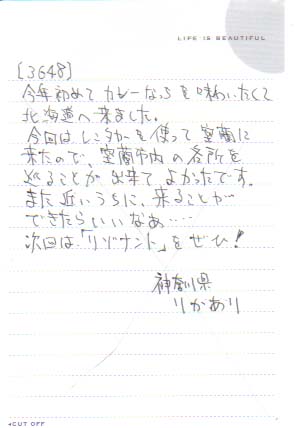 LIFE IS BEAUTIFUL
[3648]
今年初めて カレーなるを味わいたくて
北海道へ来ました。
今回はレンタカーを使って室蘭に
来たので、室蘭市内の各所を
巡ることが出来てよかったです。
また近いうちに、来ることが
できたらいいなあ……
次回は「リゾナント」をぜひ!
神奈川県
りかあり
◂CUT OFF